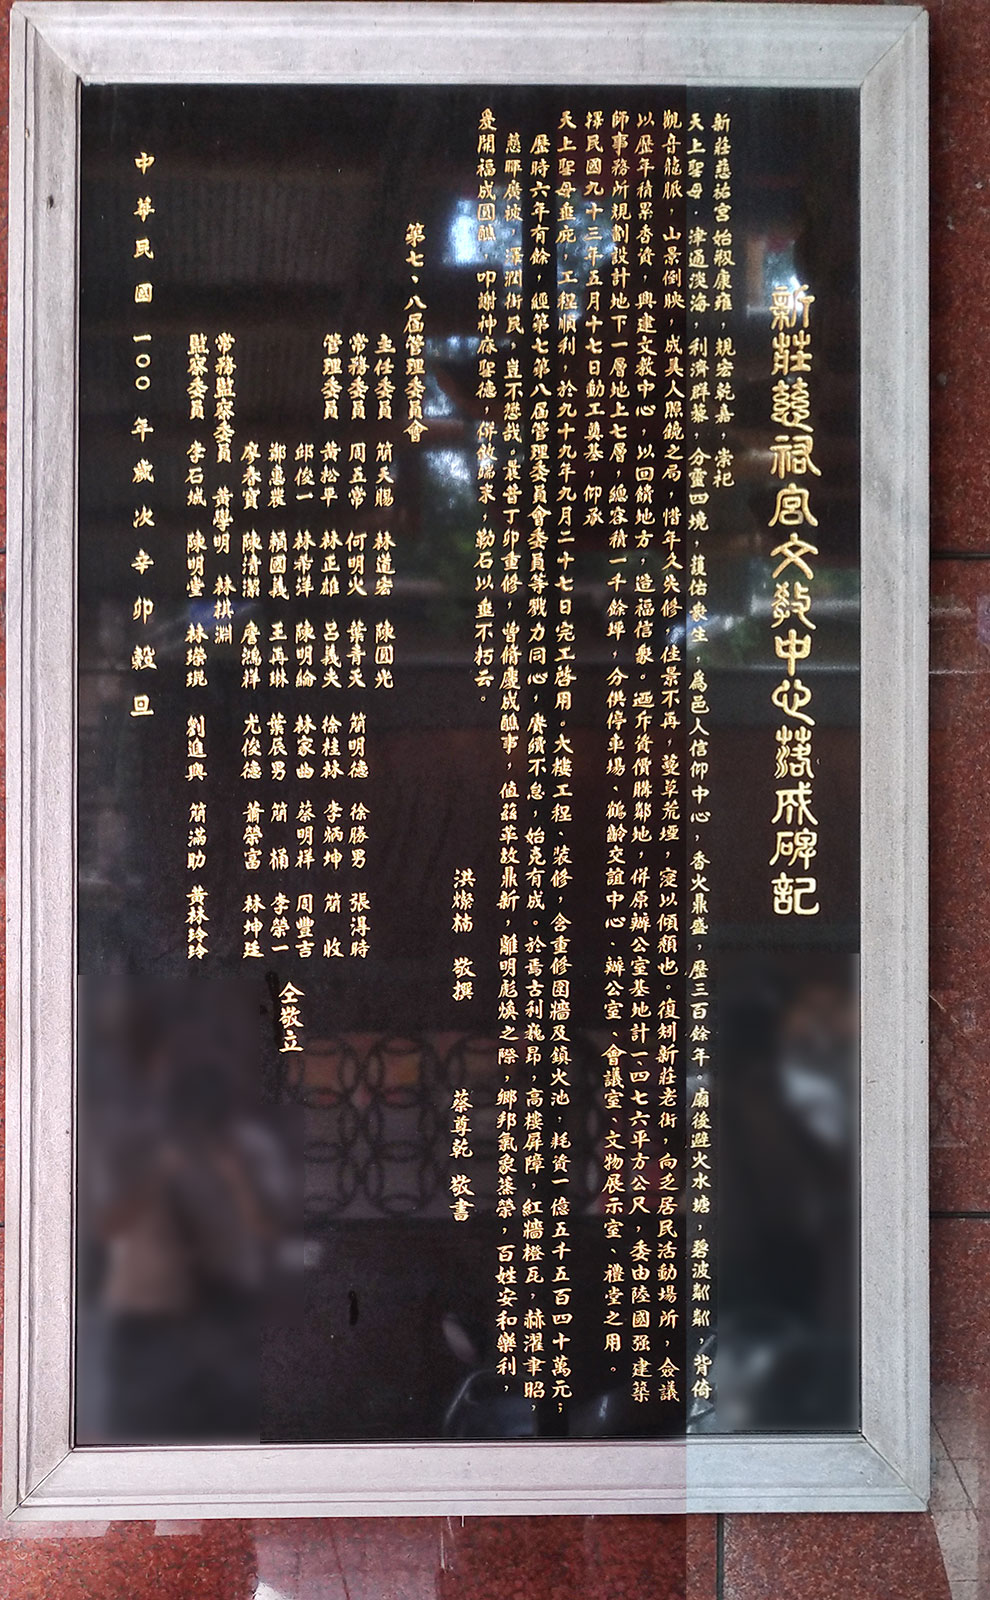 新莊慈祐宮文教中心落成碑記
新莊慈祐宮始瓶康雍，規宏乾嘉，崇祀
天上聖母．津通淡海，利濟群黎，分靈四境，護佑衆生，為邑人信仰中心，香火鼎盛，歷三百餘年。廟後避火水塘，碧波粼粼，背倚
觀音龍脈，山景倒映，成美人照鏡之局，惜年久失修，佳景不再，蔓草荒堙，寖以傾頹也。復知新莊老街，向乏居民活動場所，僉議
以歷年積累香資，興建文教中心，以回饋地方，造福信衆。迺斥資價購鄰地，併原辦公室基地計一四七六平方公尺，委由陸國强建築
師事務所規劃設計地下一層地上七層，總容積一千餘坪，分供停車場、鶴齡交誼中心、辦公室、會議室、文物展示室、禮堂之用。
擇民國九十三年五月十七日動工奠基，仰承
天上聖母垂庇，工程順利，於九十九年九月二十七日完工啓用。大樓工程、裝修，含重修圍牆及鎮火池，耗資一億五千五百四十萬元；
歷時六年有餘，經第七第八届管理委員會委員等戮力同心，賡續不怠，始克有成。於焉古刹巍昂，高樓屏障，紅牆橙瓦，赫濯聿昭，
慈暉廣被，澤潤街民，豈不懋哉。曩昔丁卯重修，曾脩慶成醮事，值茲革故鼎新，離明彪煥之際，鄉邦氣象蒸榮，百姓安和樂利，
爰開福成圓醮，叩謝神庥聖德，併敘端末，勒石以垂不朽云。
洪燦楠 敬撰 蔡尊乾 敬書
第七、八届管理委員會
主任委員 簡天賜 林道宏 陳圓光
常務委員 周五常 何明火 葉青天 簡明德 徐勝男 張淂時
管理委員 黃松平 林正雄 呂義夫 徐桂林 李炳坤 簡 收
邱俊一 林希洋 陳明綸 林家曲 蔡明祥 周豐吉
鄭惠農 賴國義 王再琳 葉辰男 簡 桶 李榮一
廖春寶 陳清潔 詹鴻祥 尤俊德 蕭榮富 林坤廷
常務監察委員 黃學明 林棋淵
監察委員 李石城 陳明堂 林瑺琨 劉進興 簡滿助 黃林玲玲
仝敬立
中華民國一００年歲次辛卯穀旦